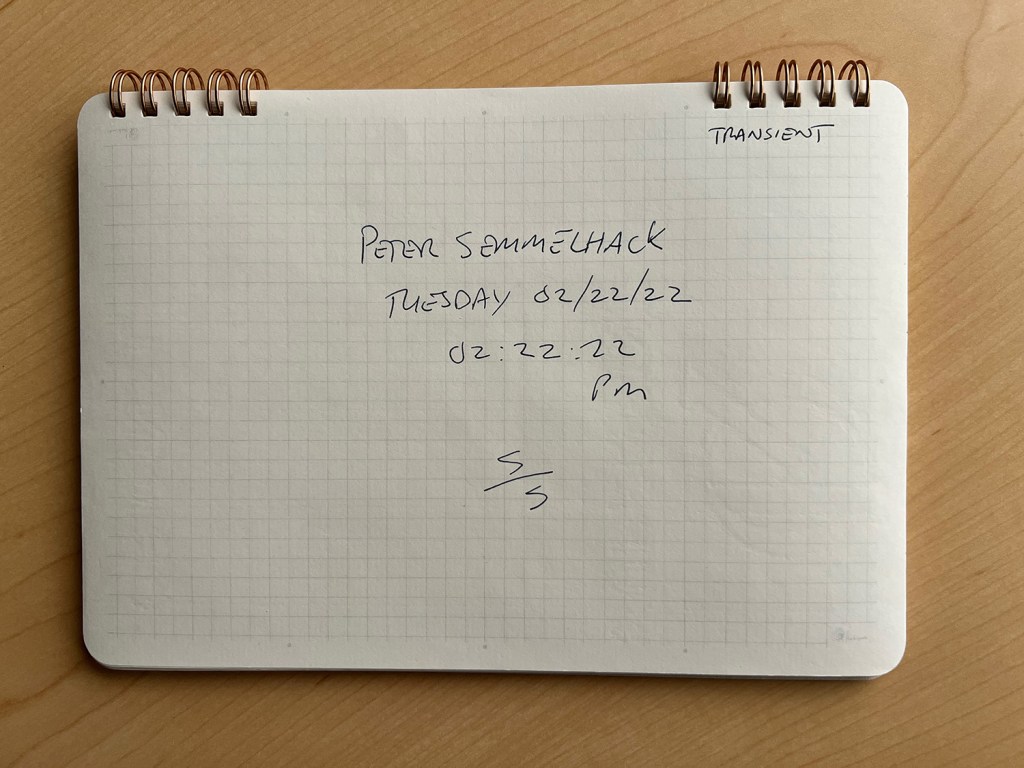 TRANSIENT
PETER SEMMELHACK
TUESDAY 02/22/22
02:22:22
PM
S
S